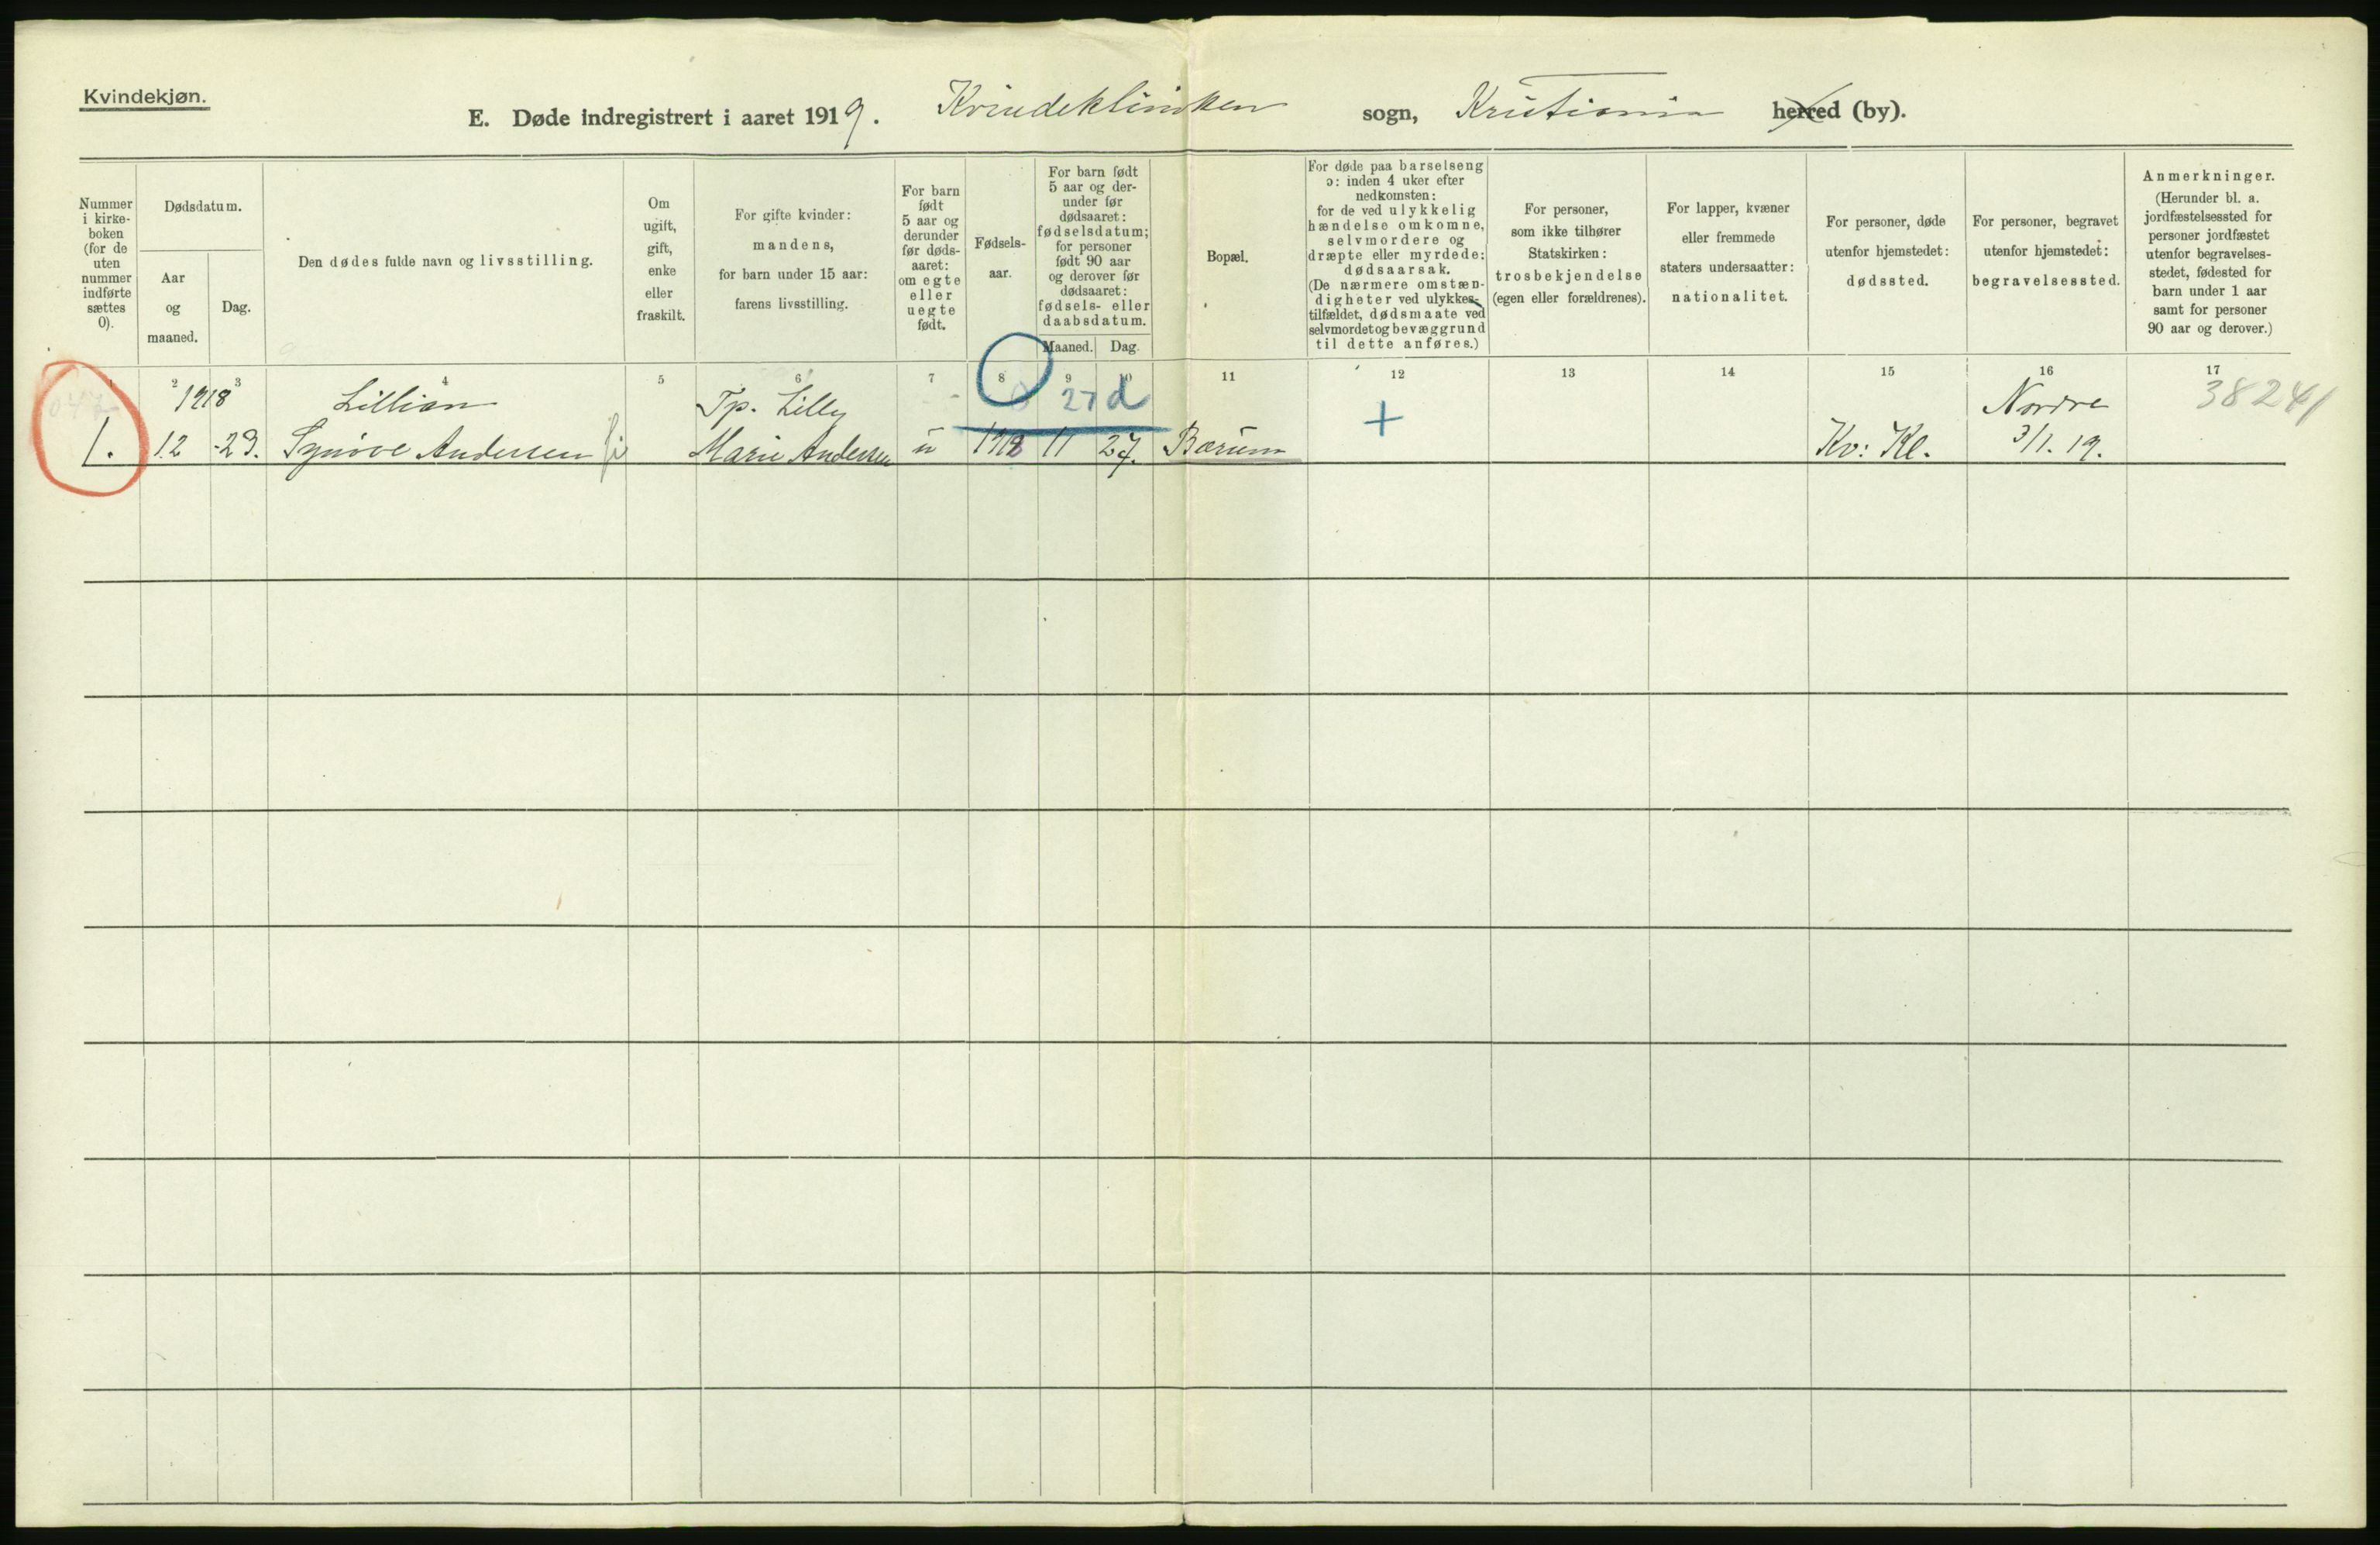 Kvindekjøn.
E. Døde indregistrert i aaret 1919. Kvindeklinikken sogn, Kristiania herred (by).
Nummer i kirke-boken (for de uten nummer indførte sættes 0).
Dødsdatum.
Aar og maaned.
Dag.
Den dødes fulde navn og livsstilling.
Om ugift, gift, enke eller fraskilt.
For gifte kvinder: mandens, for barn under 15 aar: farens livsstilling.
For barn født 5 aar og derunder før døds-aaret: om egte eller uegte født.
Fødsels-aar.
For barn født 5 aar og der-under før dødsaaret: fødselsdatum; for personer født 90 aar og derover før dødsaaret: fødsels- eller daabsdatum.
Maaned. Dag.
Bopæl.
For døde paa barselseng ɔ: inden 4 uker efter nedkomsten: for de ved ulykkelig hændelse omkomne, selvmordere og dræpte eller myrdede: dødsaarsak. (De nærmere omstæn-digheter ved ulykkes-tilfældet, dødsmaate ved selvmordet og bevæggrund til dette anføres.)
For personer, som ikke tilhører Statskirken: trosbekjendelse (egen eller forældrenes).
For lapper, kvæner eller fremmede staters undersaatter: nationalitet.
For personer, døde utenfor hjemstedet: dødssted.
For personer, begravet utenfor hjemstedet: begravelsessted.
Anmerkninger. (Herunder bl. a. jordfæstelsessted for personer jordfæstet utenfor begravelses-stedet, fødested for barn under 1 aar samt for personer 90 aar og derover.)
1 2 3 4 5 6 7 8 9 10 11 12 13 14 15 16 17
1918 Lillian Tp. Lilly 27 d + Nordre 38241
1. 12 -29. Synöve Andersen Marie Andersen u 1918 11 27. Bærum Kv: Kl. 3/1. 19.